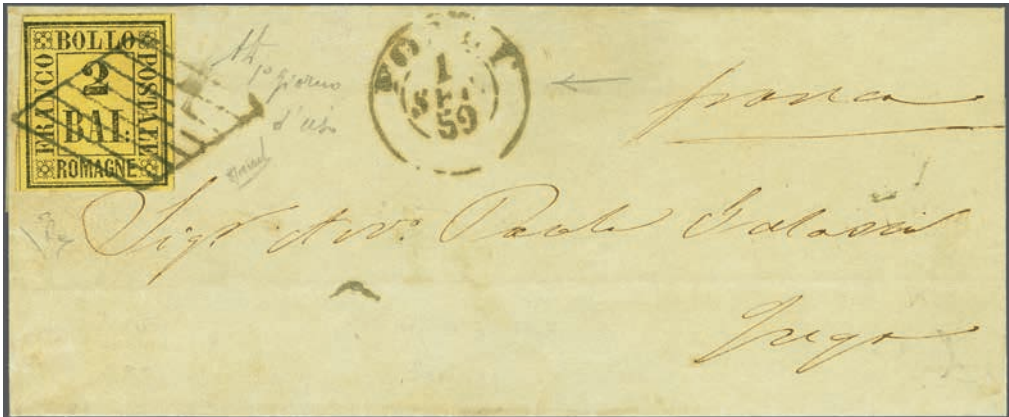 BOLLO
FRANCO
2
BAI.
POSTALE
ROMAGNE
1º giorno
d'uso
FORLÌ
1
SET
59
franca
Sigr Avvo Paolo
Lugo